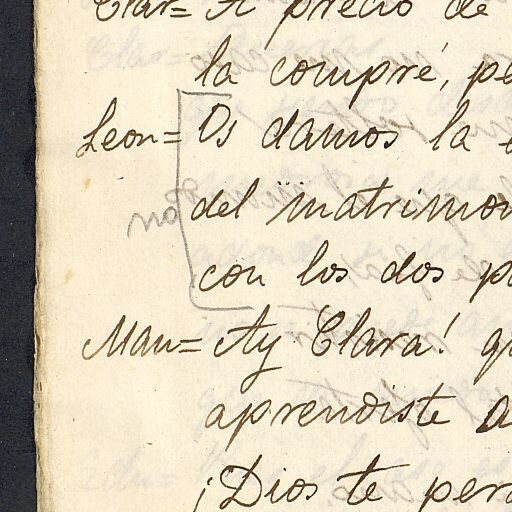 Clar= A precio de
la compré, pe
Leon= Os damos la e
del matrimon
con los dos p
Mau= Ay Clara! qu
aprendiste a
¡Dios te per